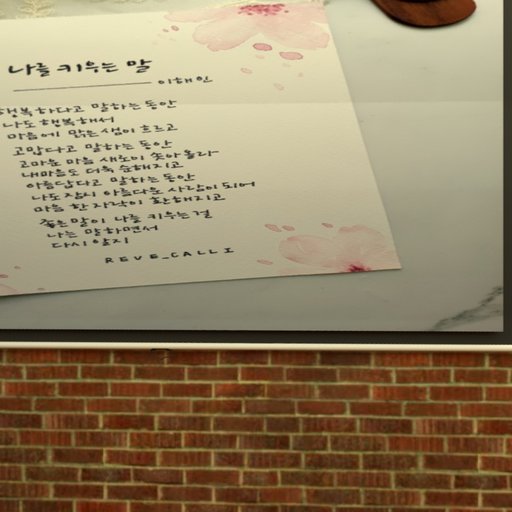 나를 키우는 말
이해인
행복하다고 말하는 동안
나도 행복해서
마음에 맑은 샘이 흐르고
고맙다고 말하는 동안
고마운 마음 새로이 솟아올라
내마음도 더욱 순해지고
아름답다고 말하는 동안
나도 잠시 아름다운 사람이 되어
마음 한자락이 환해지고
좋은 말이 나를 키우는 걸
나는 말하면서
다시 알지
REVE_CALLI